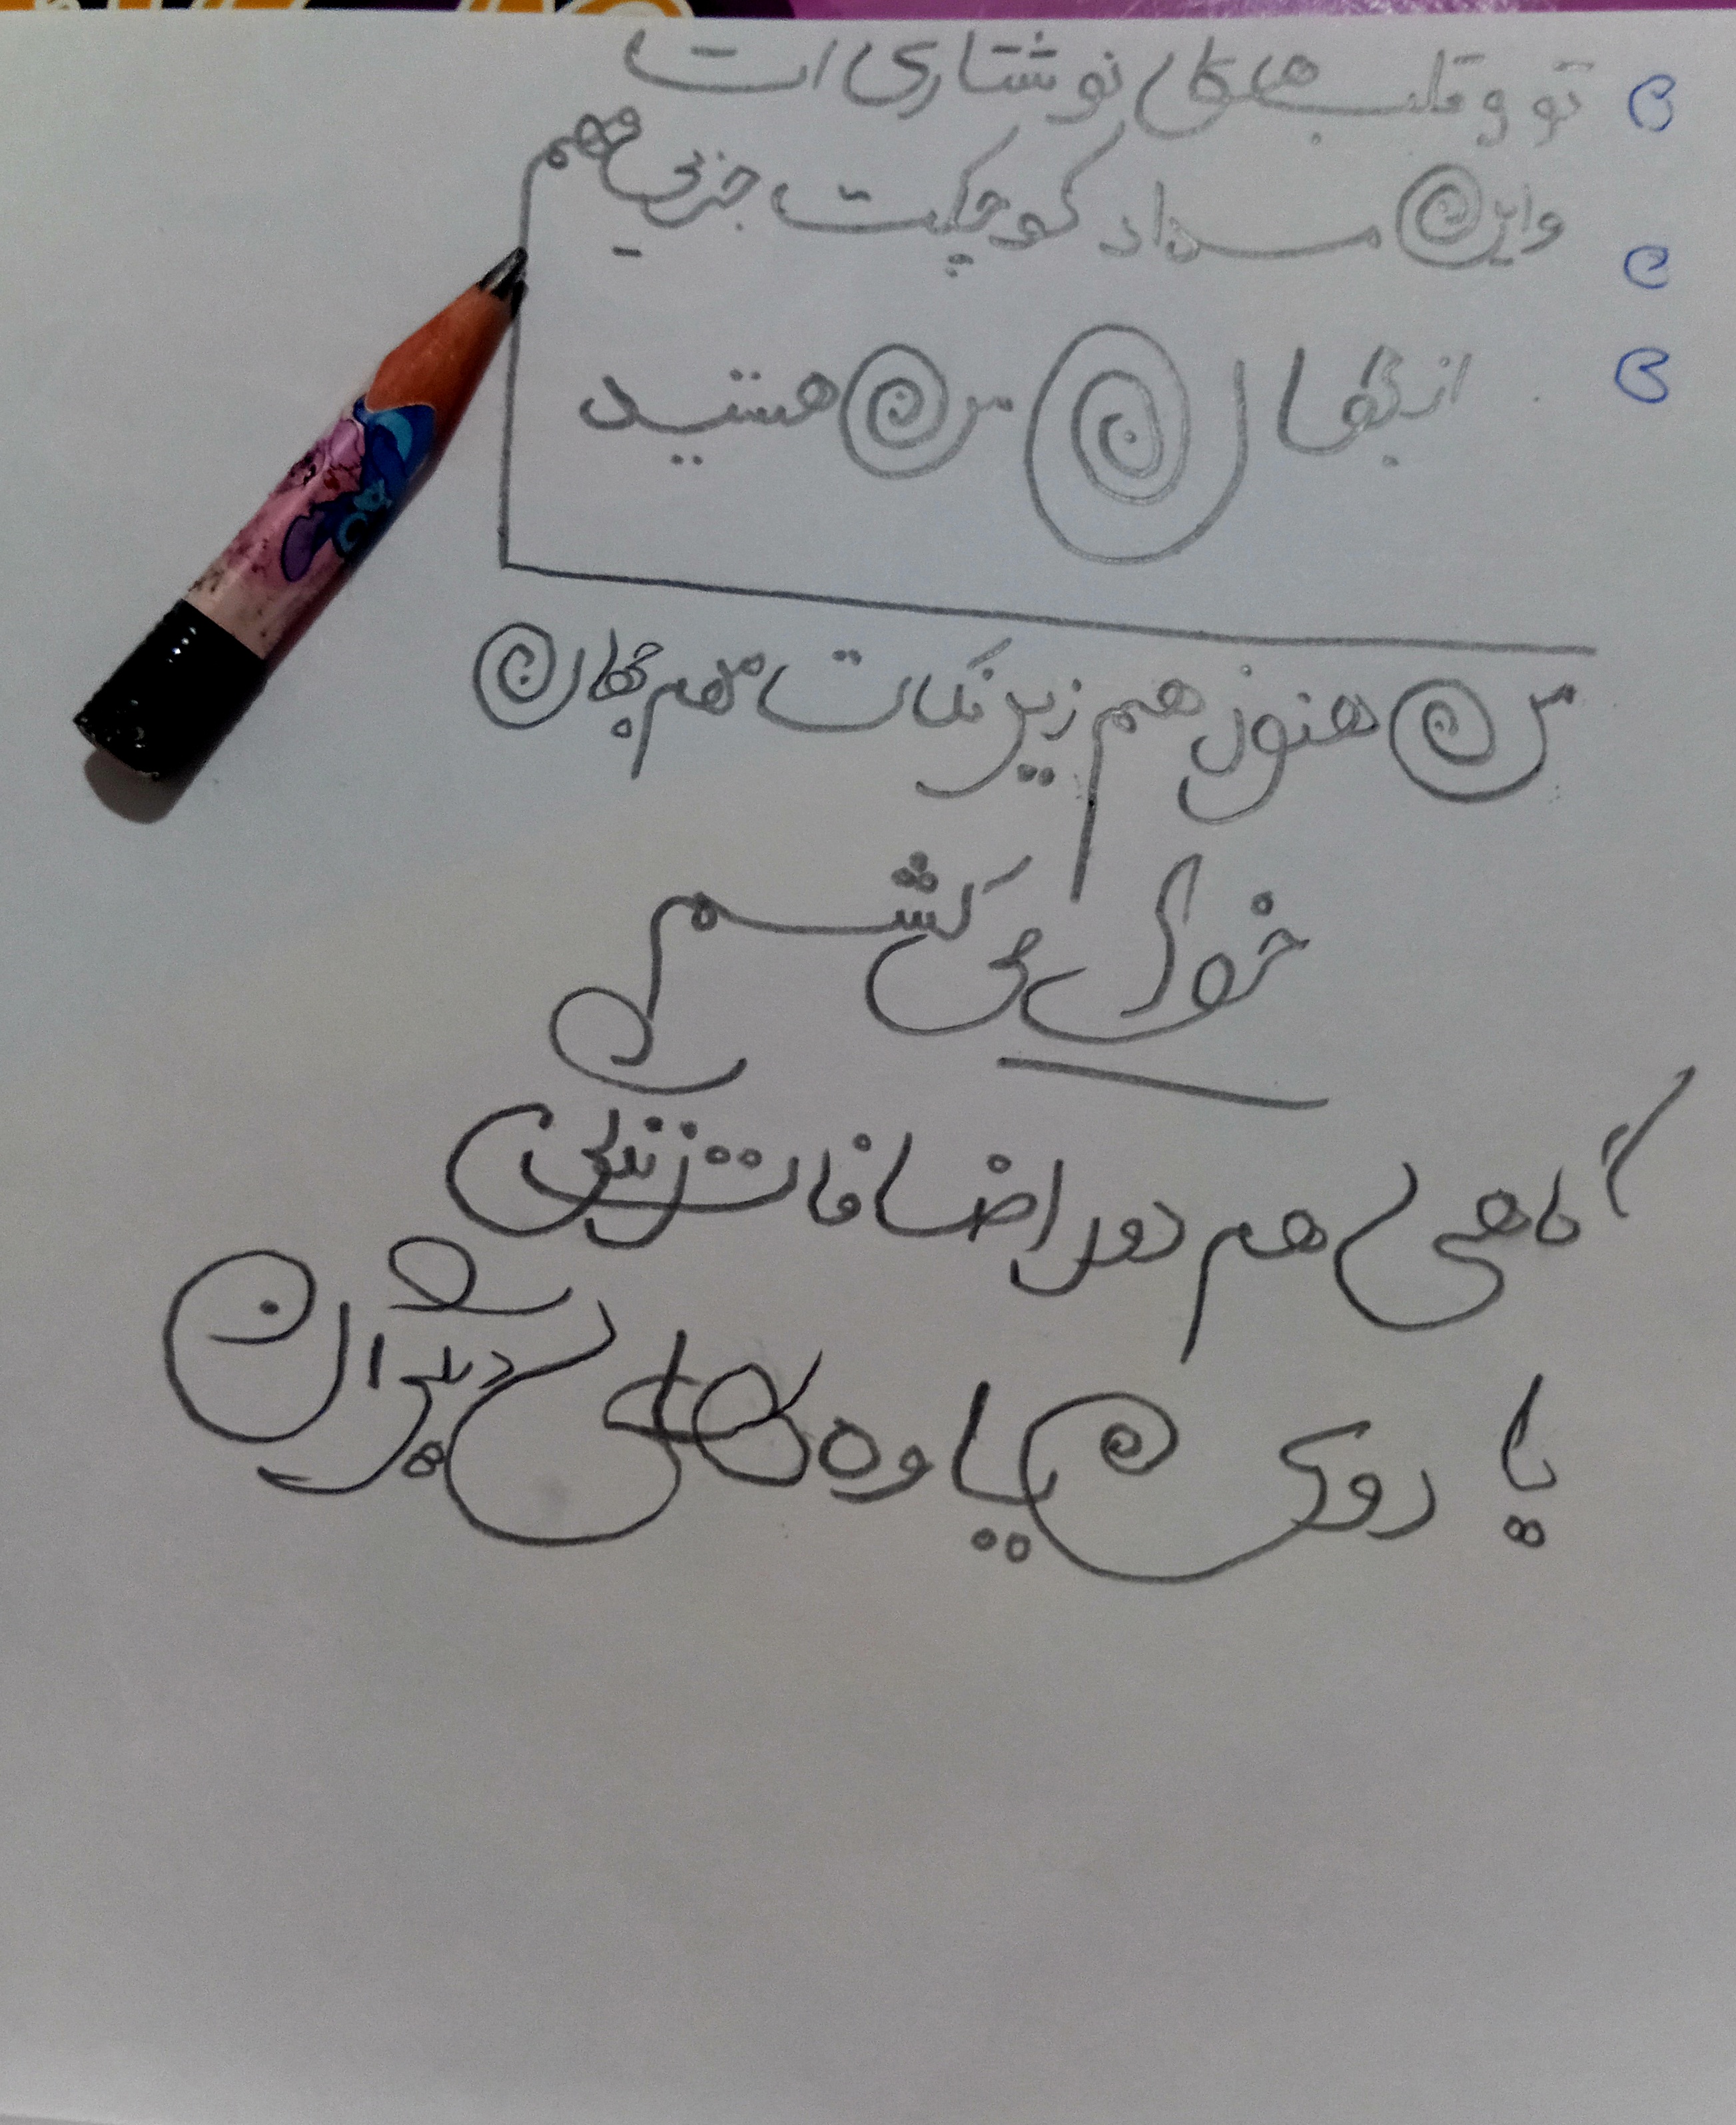 تو و قلب های نوشتاری ات
و این مداد کوچکت جزیی مهم
از جهان من هستید
من هنوز هم زیر نکات مهم جهان
خط می کشم
گاهی هم دور اضافات زندگی
یا روی یاوه های دیگران